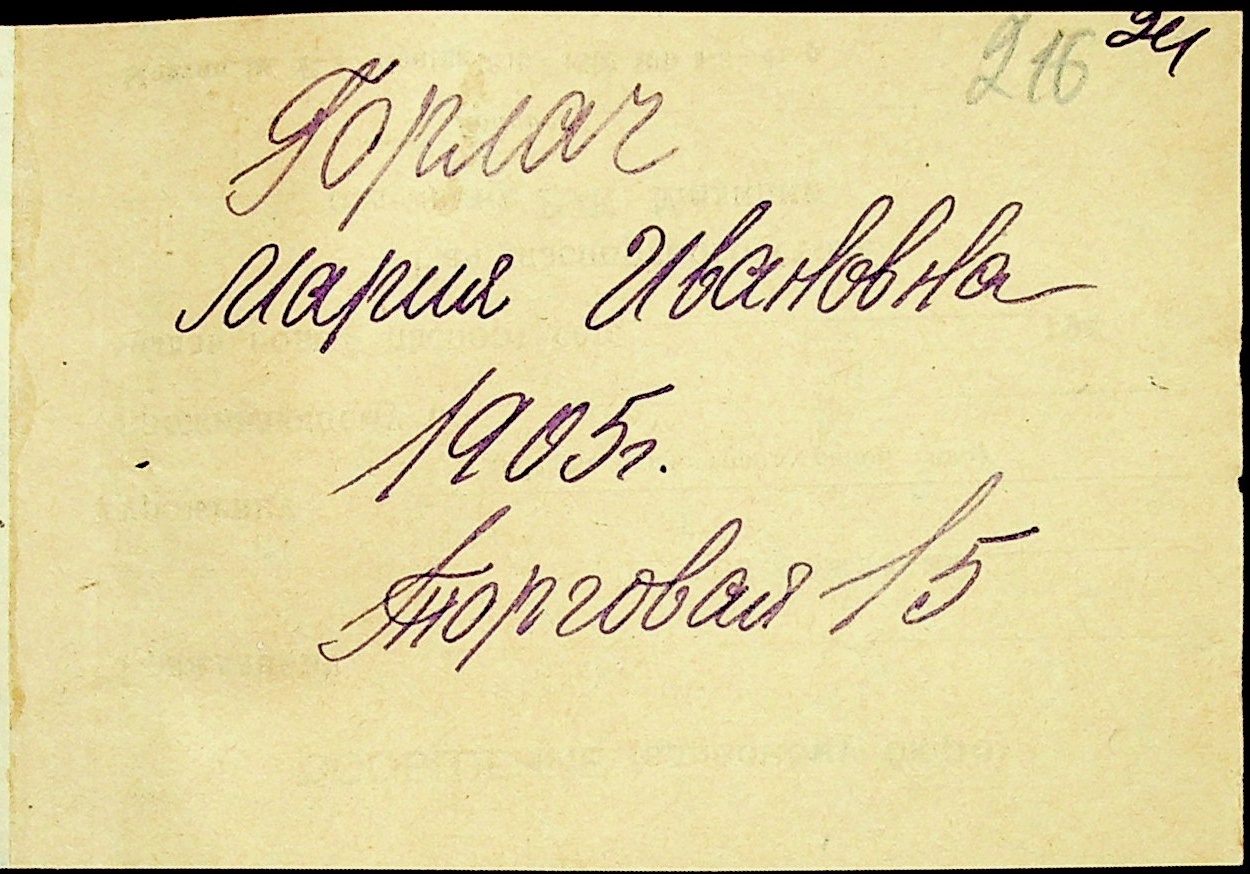 216
Горлач
Мария Ивановна
1905г.
Торговая 15